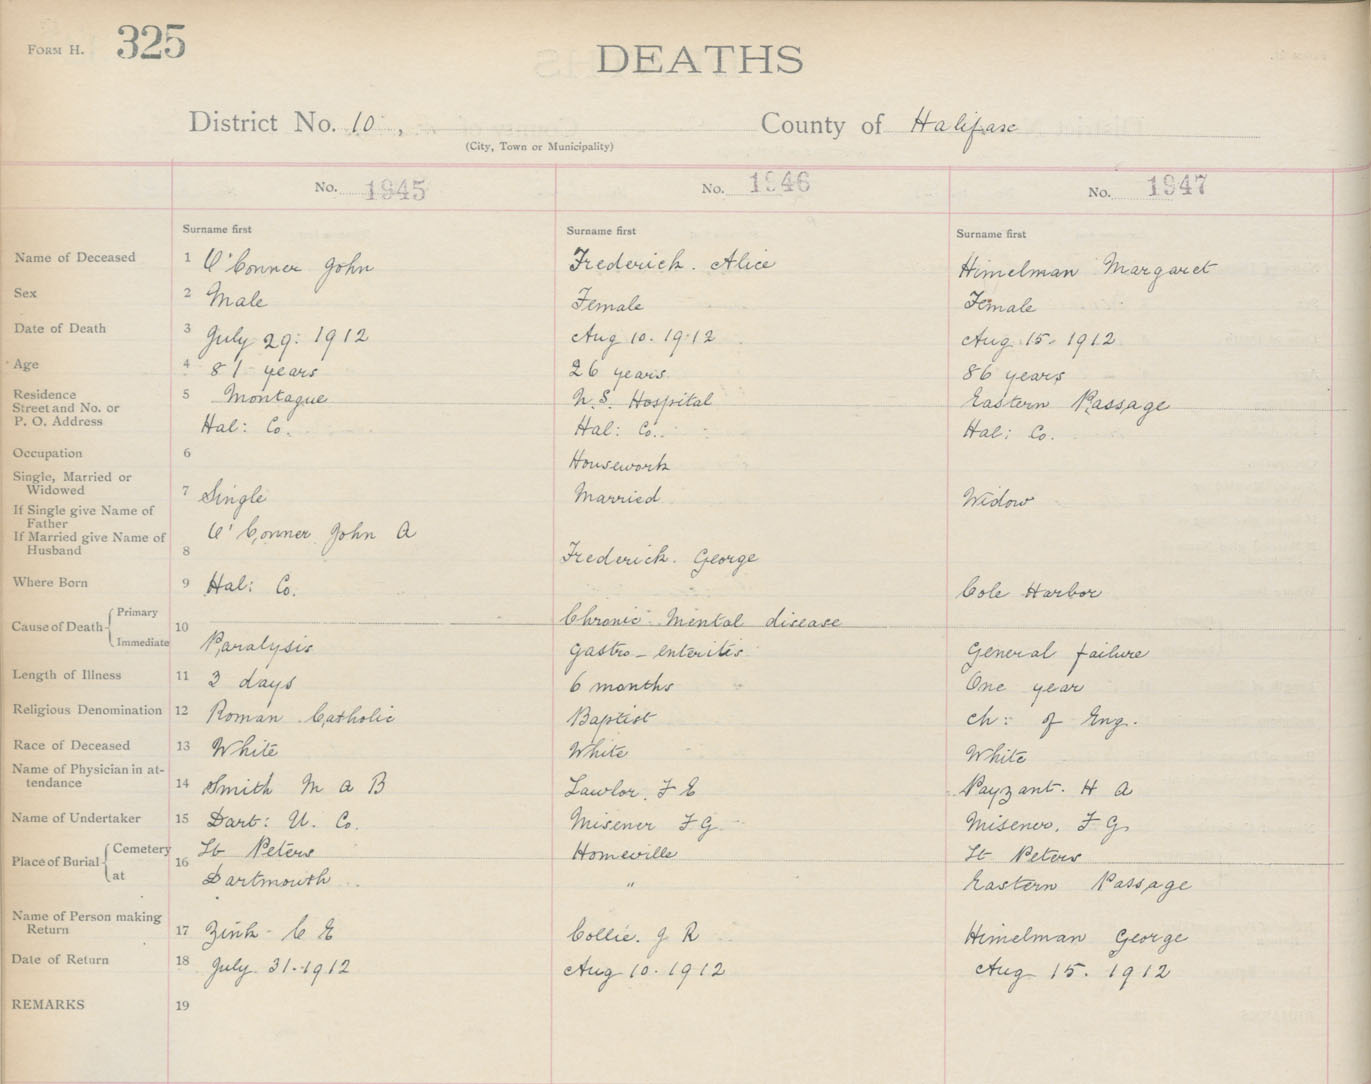 FORM H. 325
DEATHS
District No. 10 ,
County of Halifax
(City, Town or Municipality)
No. 1945 No. 1946 No. 1947
Surname first Surname first Surname first
Name of Deceased 1 O'Conner John Frederick. Alice Himelman Margaret
Sex 2 Male Female Female
Date of Death 3 July 29: 1912 Aug 10. 1912 Aug 15. 1912
Age 4 81 years 26 years. 86 years
Residence 5 Montague N.S. Hospital Eastern Passage
Street and No. or
P. O. Address Hal: Co. Hal: Co. Hal: Co.
Occupation 6 Housework
Single, Married or
Widowed 7 Single Married Widow
If Single give Name of
Father O'Conner John A
If Married give Name of
Husband 8 Frederick. George
Where Born 9 Hal: Co. Cole Harbor
Cause of Death Primary 10 Chronic Mental disease
Immediate Paralysis gastro-enteritis General failure
Length of Illness 11 3 days 6 months One year
Religious Denomination 12 Roman Catholic Baptist Ch: of Eng.
Race of Deceased 13 White White White
Name of Physician in at-
tendance 14 Smith M A B Lawlor. F E Payzant. H A
Name of Undertaker 15 Dart: U. Co. Misener F G Misener. F G
Place of Burial Cemetery 16 St Peters Homeville St Peters
at Dartmouth " Eastern Passage
Name of Person making
Return 17 Zink - C E Collie. J R Himelman George
Date of Return 18 July 31-1912 Aug 10. 1912 Aug 15. 1912
REMARKS 19